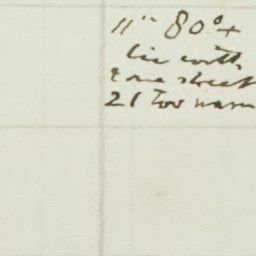 11" 80°+
lie with
one sheet
21 too warm